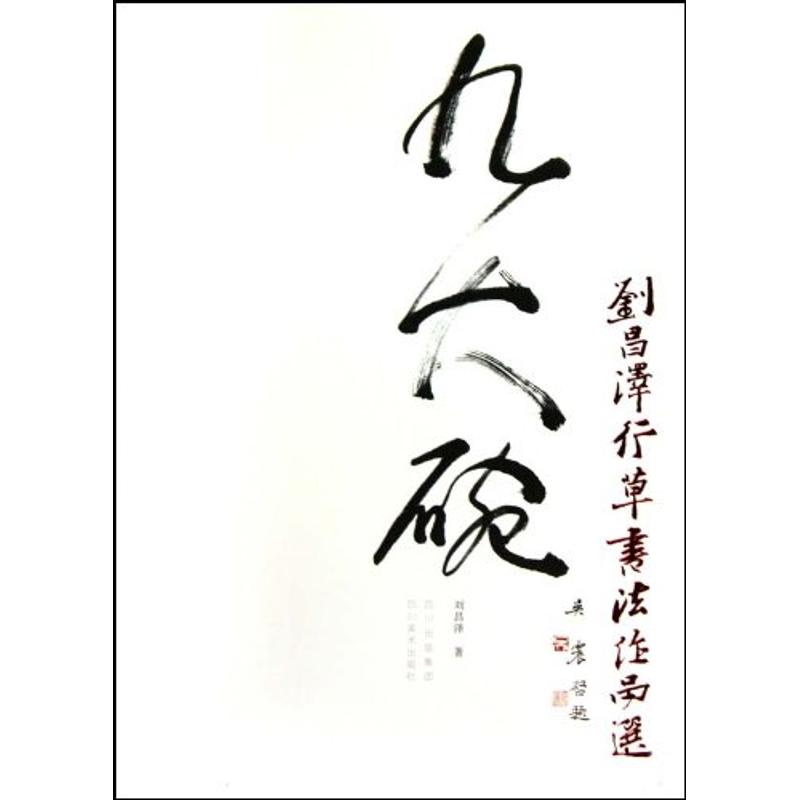 九大碗
劉昌澤行草書法作品選
吴震啓题
刘昌泽 著
四川出版集团
四川美术出版社